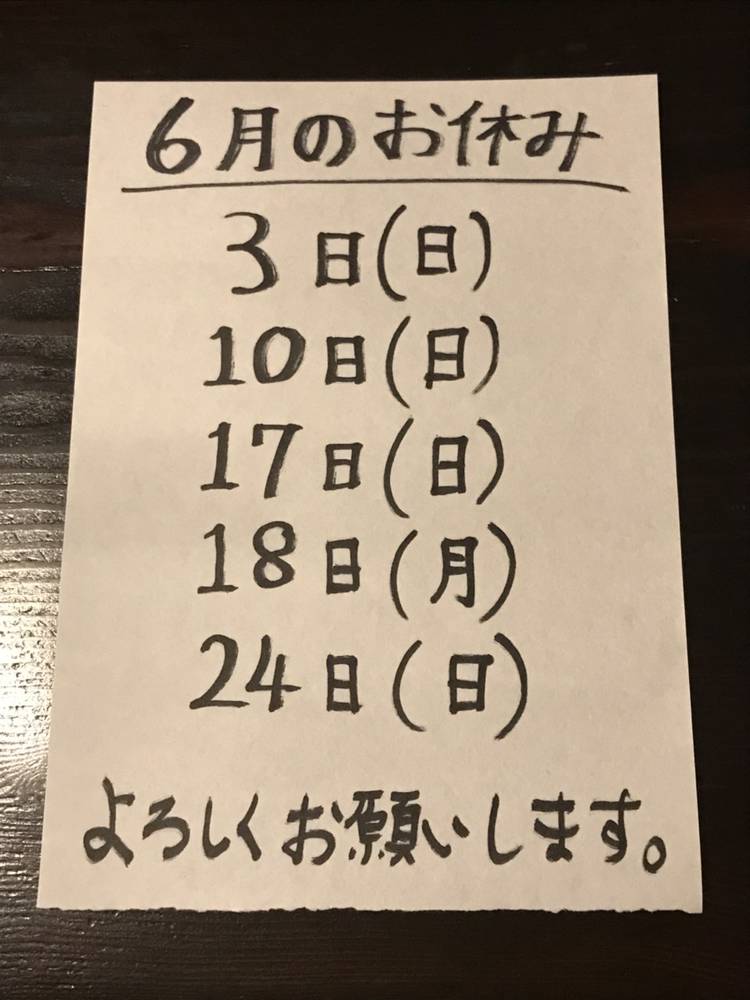 6月のお休み
3日(日)
10日(日)
17日(日)
18日(月)
24日(日)
よろしくお願いします。